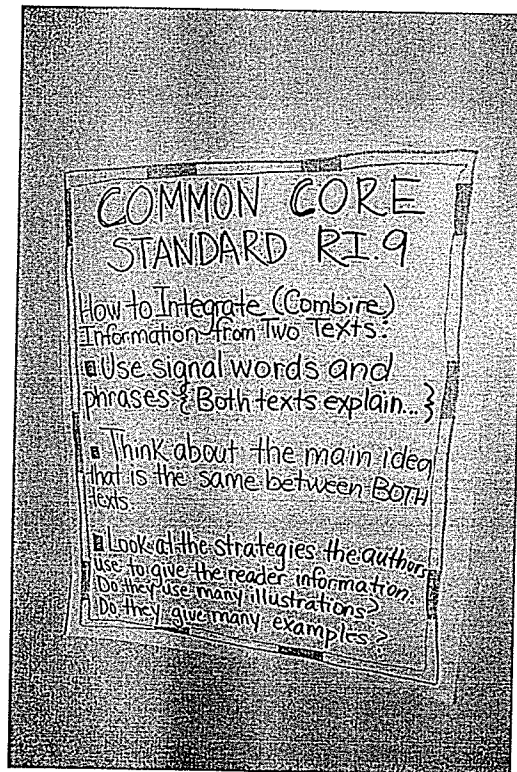 COMMON CORE
STANDARD RI.9
How to Integrate (Combine)
Information from Two Texts:
Use signal words and
phrases {Both texts explain...}
Think about the main idea
that is the same between BOTH
texts.
Look at the strategies the authors
use to give the reader information.
Do they use many illustrations?
Do they give many examples?